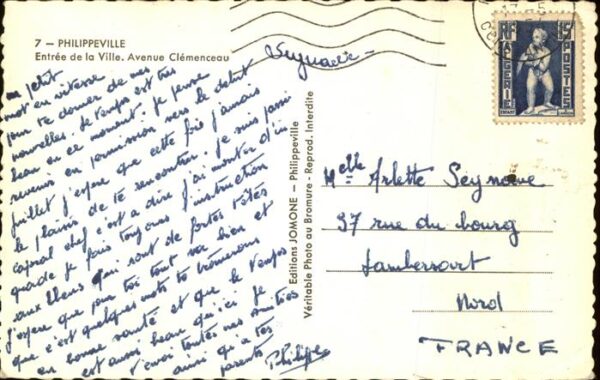 7 - PHILIPPEVILLE
Entrée de la Ville. Avenue Clémenceau
un petit
mot en vitesse
pour te donner de mes
nouvelles. Le temps est très
beau en ce moment. Je pense
revenir en permission vers le début
juillet j'espère que cette fois j'aurais
le plaisir de te rencontrer. Je suis passé
caporal chef c'est a dire j'ai monter d'un
grade je fais toujours l'instruction
aux bleus qui sont de fortes têtes
j'espère que pour toi tout va bien et
que c'est quelques mots te trouverons
en bonne santé et que le temps
est aussi beau qu'ici je
t'envoi toutes mes amitiés
ainsi qu'a tes
parents
Philippe
Editions JOMONE - Philippeville
Véritable Photo au Bromure - Reprod. Interdite
RF
15F
ALGERIE
POSTES
Melle Arlette Seynave
37 rue du bourg
Lambersart
Nord
FRANCE